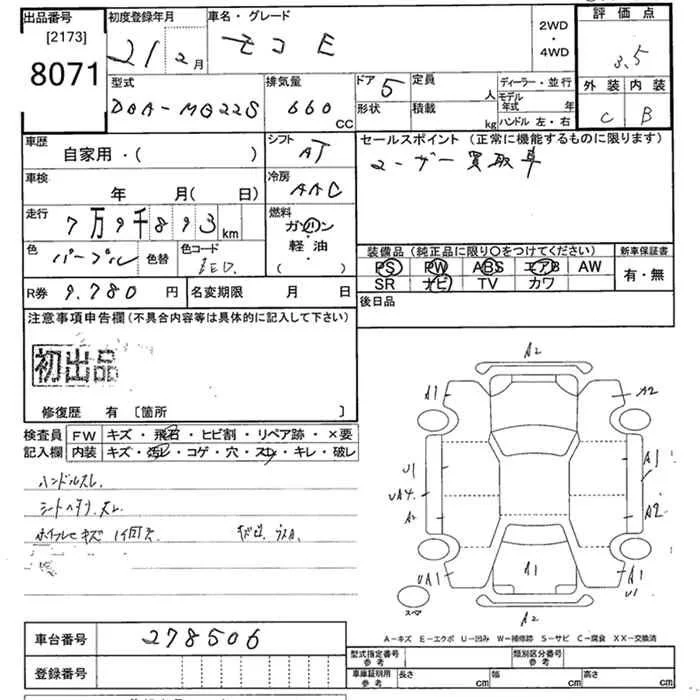 出品番号
[2173]
8071
初度登録年月
21 2月
車名・グレード
モコ E
2WD
・
4WD
評価点
3.5
外装 内装
C B
型式
DBA-MG22S
排気量
660
CC
ドア 5
形状
定員
人
積載
kg
ディーラー・並行
モデル年式 年
ハンドル 左・右
車歴
自家用・( )
シフト
AT
セールスポイント (正常に機能するものに限ります)
ユーザー買取車
車検
年 月( 日)
冷房
AAC
走行
7万9千893km
燃料
ガソリン
軽・油
( )
色
パープル
色替
色コード
装備品 (純正品に限り○をつけてください)
PS PW ABS エアB AW
SR ナビ TV カワ
新車保証書
有・無
R券 9.780 円
名変期限 月 日
後日品
注意事項申告欄(不具合内容等は具体的に記入して下さい)
初出品
修復歴 有 [箇所 ]
検査員
記入欄
FW キズ・飛石・ヒビ割・リペア跡・×要
内装 キズ・汚レ・コゲ・穴・スレ・キレ・破レ
ハンドルスレ.
シートヘタリ.スレ
A2
A1
A2
U1
A1
UA4.
A2
A2
UA1
A1
A1
A2
スペア
A-キズ E-エクボ U-凹み W-補修跡 S-サビ C-腐食 XX-交換済
車台番号
278506
登録番号
型式指定番号
参考
類別区分番号
参考
車庫証明用
参考
長さ cm
幅 cm
高さ cm